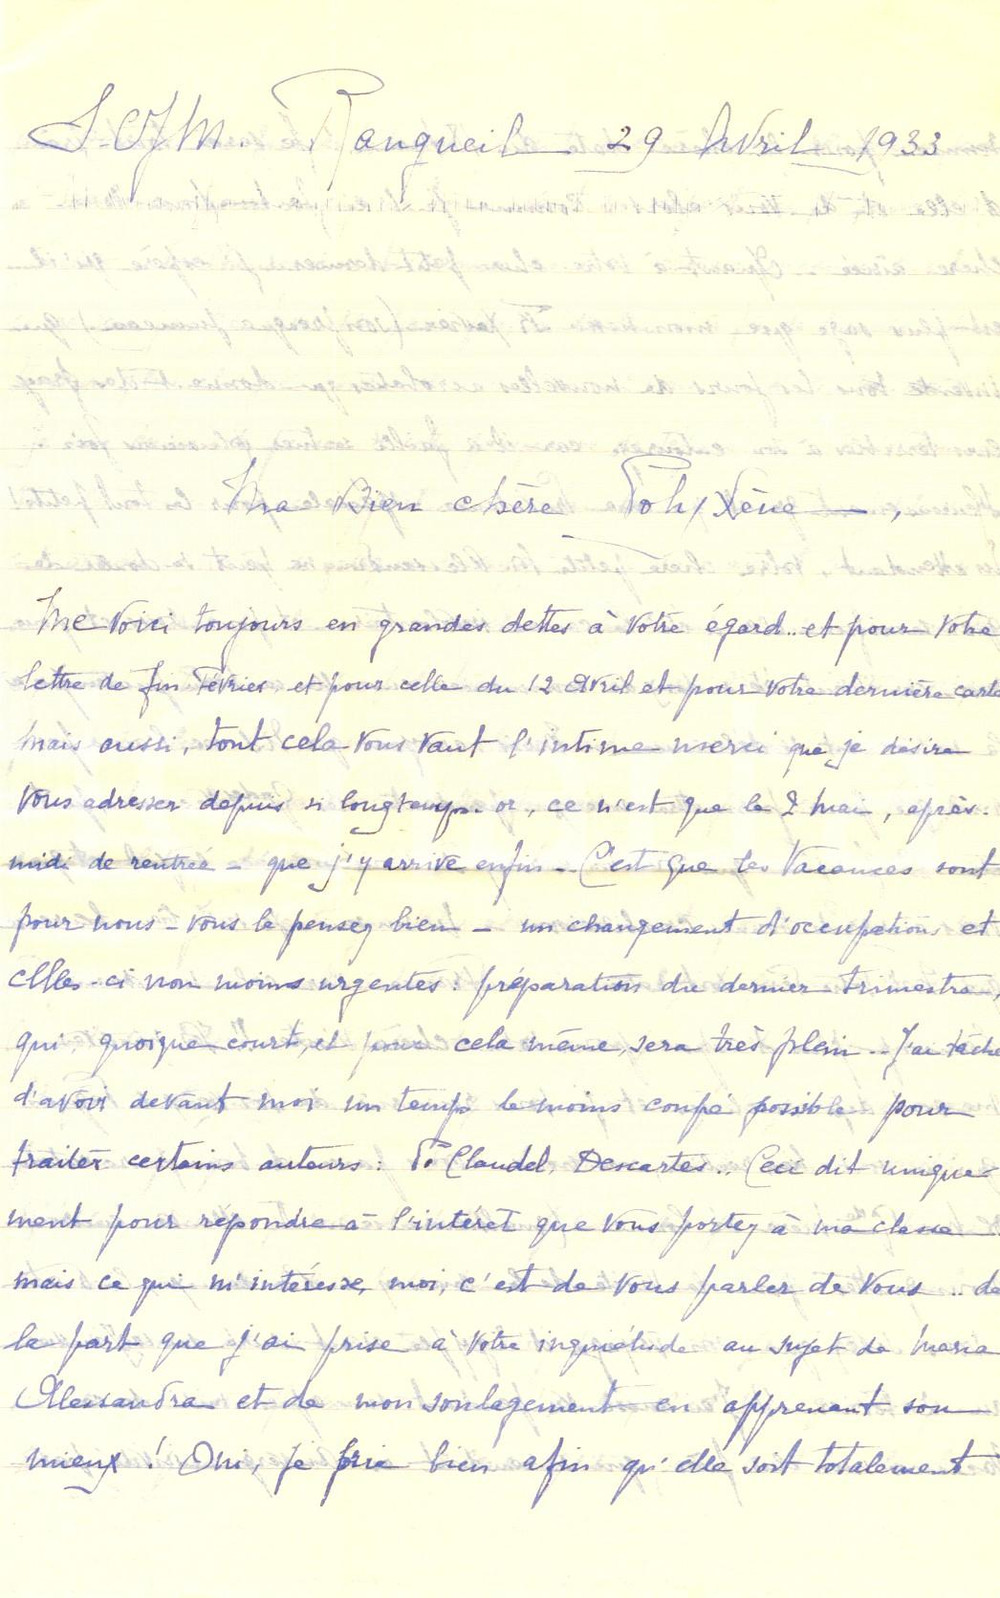 Rangueil 29 Avril 1933
Ma Bien chère Polyxène,
Me voici toujours en grandes dettes à votre égard.. et pour votre
lettre de fin Février et pour celle du 12 Avril et pour votre dernière carte
mais aussi, tout cela vous vaut l'intime merci que je désire
vous adresser depuis si longtemps.. or, ce n'est que le 2 Mai, après-
midi de rentrée - que j'y arrive enfin - C'est que les Vacances sont
pour nous - vous le pensez bien - un changement d'occupations et
celles-ci non moins urgentes : préparation du dernier trimestre,
qui, quoique court, et pour cela même, sera très plein.. J'ai tâché
d'avoir devant moi un temps le moins coupé possible pour
traiter certains auteurs : P. Claudel, Descartes.. Ceci dit unique-
ment pour répondre à l'intérêt que vous portez à ma classe
mais ce qui m'intéresse, moi, c'est de vous parler de vous .. de
la part que j'ai prise à votre inquiétude au sujet de Maria
Alessandra et de mon soulagement en apprenant son
mieux ! Oui, je prie bien afin qu'elle soit totalement